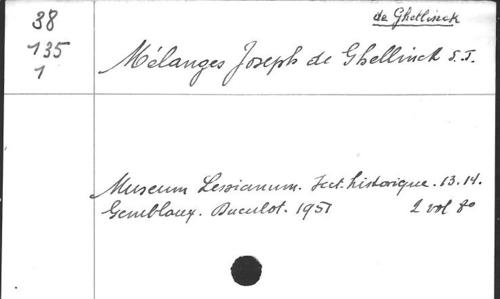 de Ghellinck
38
135
1
Mélanges Joseph de Ghellinck S.J.
Museum Lessianum. Sect. historique. 13.14.
Gembloux. Duculot. 1951 2 vol 8°